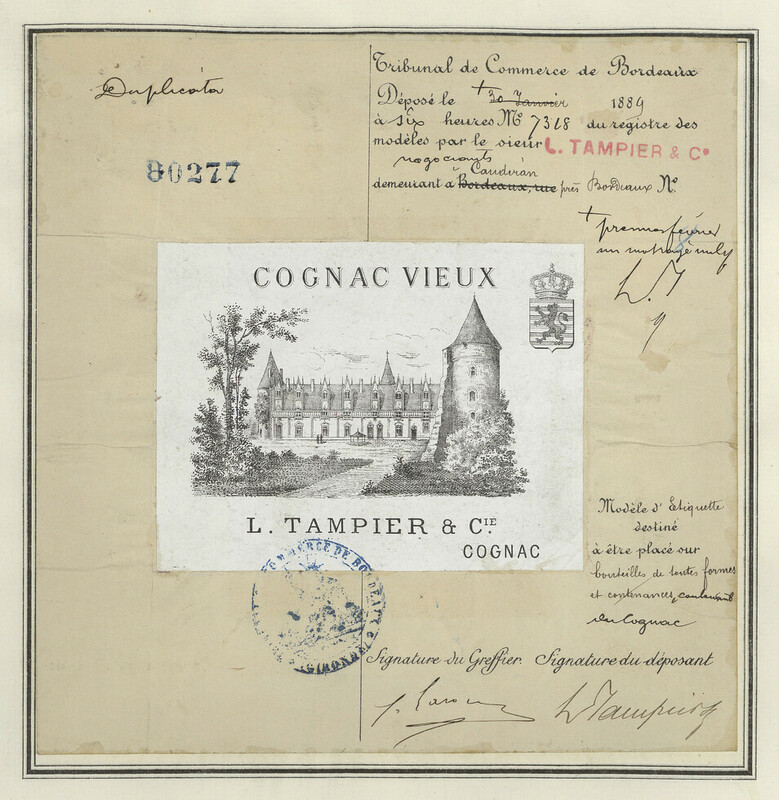 Duplicata
80277
Tribunal de Commerce de Bordeaux
Déposé le + 30 Janvier 1889
à six heures Mº 7318 du registre des
modèles par le sieur L. TAMPIER & Cº
négociants
Caudéran
demeurant à Bordeaux, rue près Bordeaux Nº
+ premier février
un mot rayé nul
L. T
COGNAC VIEUX
L. TAMPIER & CIE
COGNAC
Modèle d'Etiquette
destiné
à être placé sur
bouteilles de toutes formes
et contenances, contenant
du Cognac
COMMERCE DE BORDEAUX
GIRONDE
Signature du Greffier. Signature du déposant
L Tampier